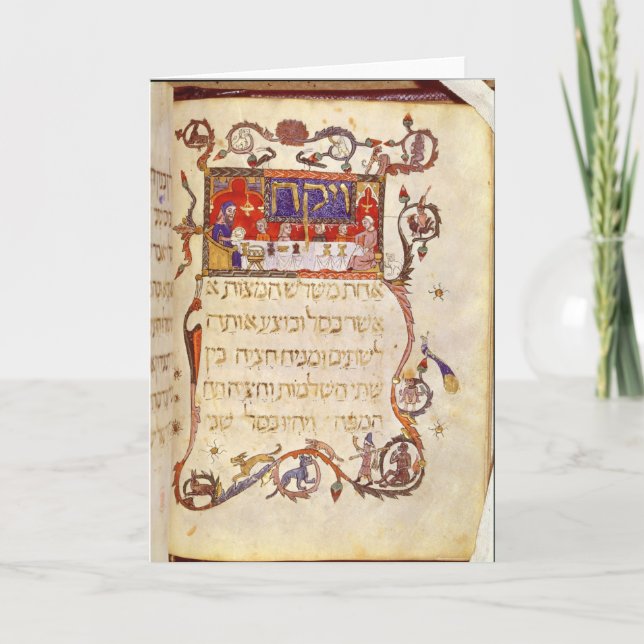 ויקח
אחת משלש המצות א
אשר בסל ובוצע אותה
לשתים ומניח חציה בין
שתי השלמות וחציה תחת
המפה ויהיו בסל שני